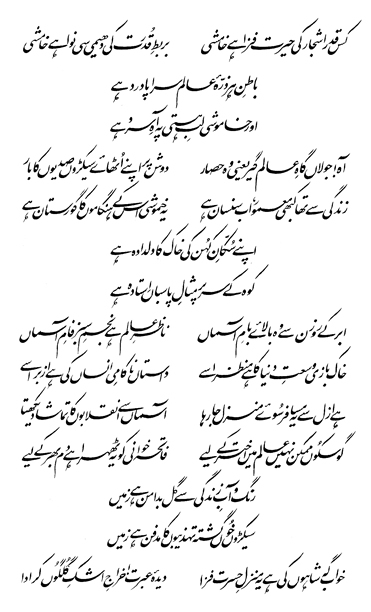 کس قدر اشجار کی حیرت فزا ہے خامشی بربطِ قُدرت کی دھیمی سی نوا ہے خامشی
باطنِ ہر ذرّۂ عالم سراپا درد ہے
اور خاموشی لبِ ہستی پہ آہِ سرد ہے
آہ! جولاں گاہِ عالم گیر یعنی وہ حصار دوش پر اپنے اُٹھائے سیکڑوں صدیوں کا بار
زندگی سے تھا کبھی معمور، اب سنسان ہے یہ خموشی اس کے ہنگاموں کا گورستان ہے
اپنے سُکّانِ کُہن کی خاک کا دلدادہ ہے
کوہ کے سر پر مثالِ پاسباں استادہ ہے
ابر کے روزن سے وہ بالائے بامِ آسماں ناظرِ عالم ہے نجمِ سبز فامِ آسماں
خاک بازی وسعتِ دنیا کا ہے منظر اسے داستاں ناکامیِ انساں کی ہے ازبر اسے
ہے ازل سے یہ مسافر سُوئے منزل جا رہا آسماں سے انقلابوں کا تماشا دیکھتا
گو سکُوں ممکن نہیں عالم میں اختر کے لیے فاتحہ خوانی کو یہ ٹھہرا ہے دم بھر کے لیے
رنگ و آبِ زندگی سے گُل بدامن ہے زمیں
سیکڑوں خُوں گشتہ تہذیبوں کا مدفن ہے زمیں
خواب گہ شاہوں کی ہے یہ منزلِ حسرت فزا دیدۂ عبرت! خراجِ اشکِ گُلگُوں کر ادا